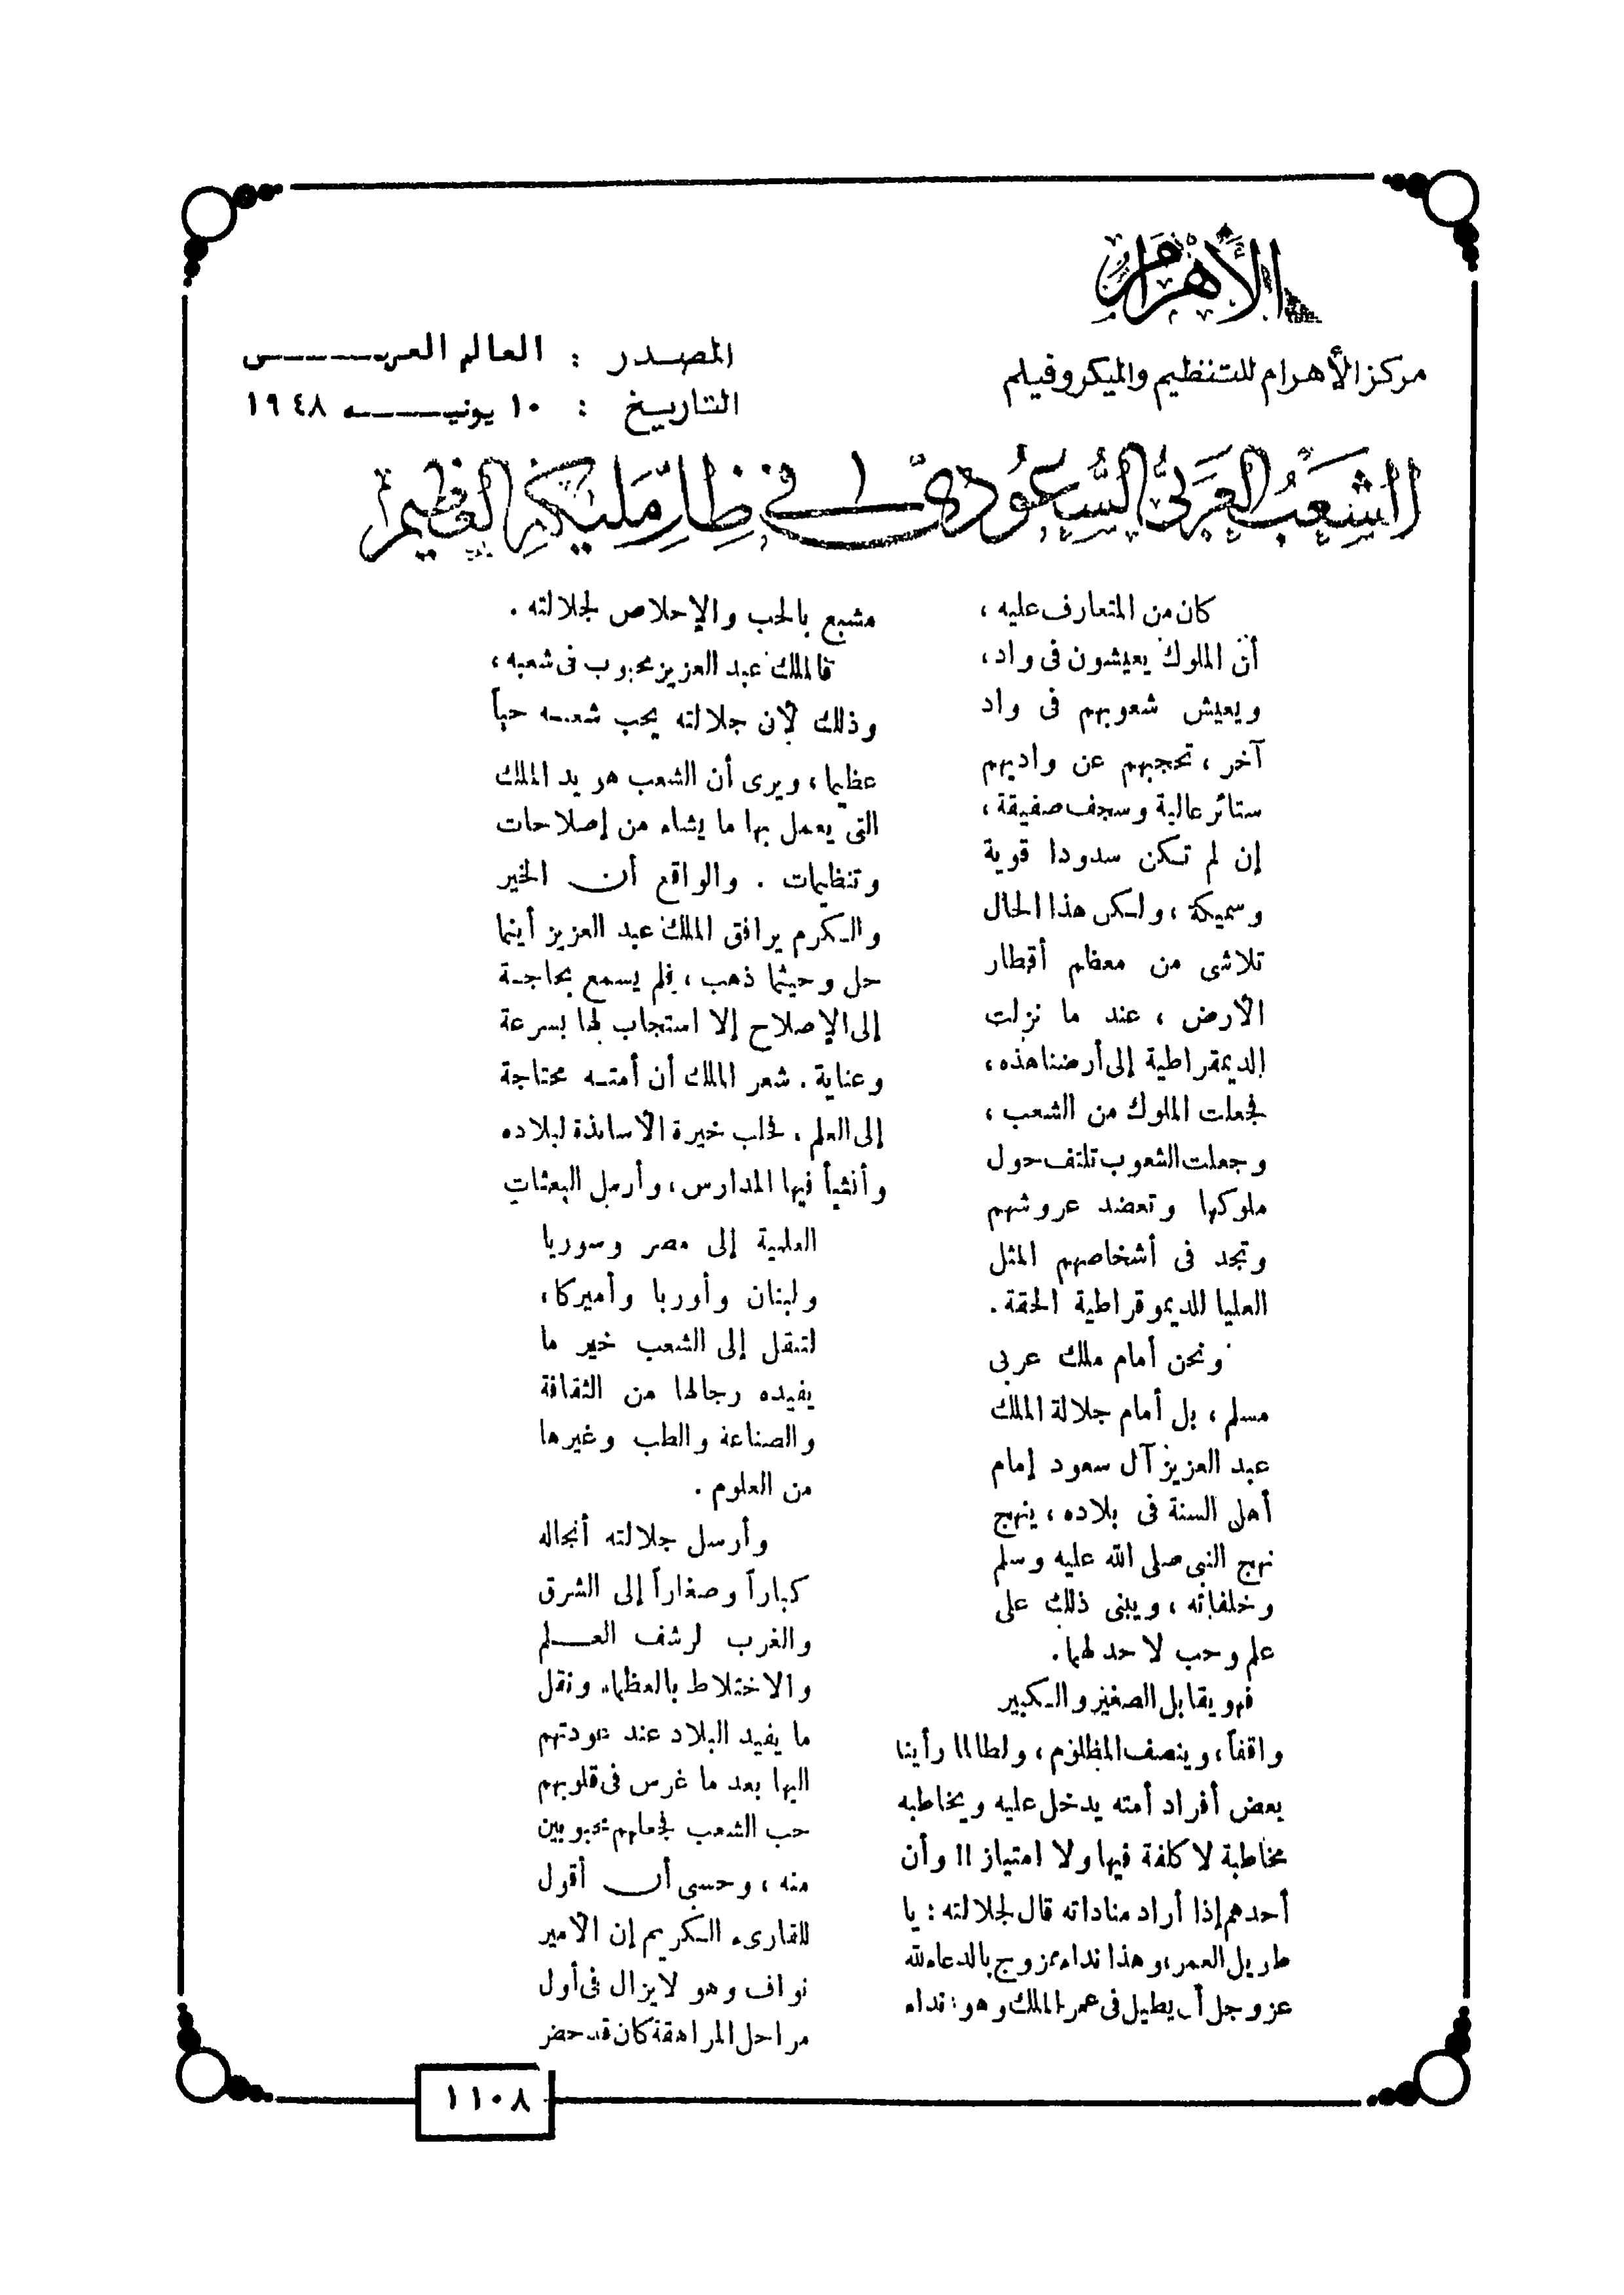 الأهرام
مركز الأهرام للتنظيم والميكروفيلم
المصدر : العالم العربى
التاريخ : ١٠ يونيه ١٩٤٨
الشعب العربى السعودى فى ظل مليكه العظيم
كان من المتعارف عليه ،
أن الملوك يعيشون فى واد ،
ويعيش شعوبهم فى واد
آخر ، تحجبهم عن واديهم
ستائر عالية وسجف صفيقة ،
إن لم تكن سدودا قوية
وسميكة ، ولكن هذا الحال
تلاشى من معظم أقطار
الأرض ، عند ما نزلت
الديمقراطية إلى أرضنا هذه ،
فجعلت الملوك من الشعب ،
وجعلت الشعوب تلتف حول
ملوكها وتعضد عروشهم
وتجد فى أشخاصهم المثل
العليا للديموقراطية الحقة .
ونحن أمام ملك عربى
مسلم ، بل أمام جلالة الملك
عبد العزيز آل سعود إمام
أهل السنة فى بلاده ، ينهج
نهج النبى صلى الله عليه وسلم
وخلفائه ، ويبنى ذلك على
علم وحب لا حد لهما .
فهو يقابل الصغير والكبير
واقفاً ، وينصف المظلوم ، ولطالما رأينا
بعض أفراد أمته يدخل عليه ويخاطبه
مخاطبة لا كلفة فيها ولا امتياز !! وأن
أحدهم إذا أراد مناداته قال لجلالته : يا
طويل العمر ، وهذا نداء ممزوج بالدعاء لله
عز وجل أن يطيل فى عمر الملك وهو نداء
مشبع بالحب والإخلاص لجلالته .
فالملك عبد العزيز محبوب فى شعبه ،
وذلك لأن جلالته يحب شعبه حباً
عظيما ، ويرى أن الشعب هو يد الملك
التى يعمل بها ما يشاء من إصلاحات
وتنظيمات . والواقع أن الخير
والكرم يرافق الملك عبد العزيز أينما
حل وحيثما ذهب ، فلم يسمع بحاجة
إلى الإصلاح إلا استجاب لها بسرعة
وعناية . شعر الملك أن أمته محتاجة
إلى العلم ، فجلب خيرة الأساتذة لبلاده
وأنشأ فيها المدارس ، وأرسل البعثات
العلمية إلى مصر وسوريا
ولبنان وأوربا وأميركا ،
لتنقل إلى الشعب خير ما
يفيده رجالها من الثقافة
والصناعة والطب وغيرها
من العلوم .
وأرسل جلالته أنجاله
كباراً وصغاراً إلى الشرق
والغرب لرشف العلم
والاختلاط بالعظماء ونقل
ما يفيد البلاد عند عودتهم
اليها بعد ما غرس فى قلوبهم
حب الشعب فجعلهم محبوبين
منه ، وحسبى أن أقول
للقارىء الكريم إن الأمير
نواف وهو لا يزال فى أول
مراحل المراهقة كان قد حضر
١١٠٨